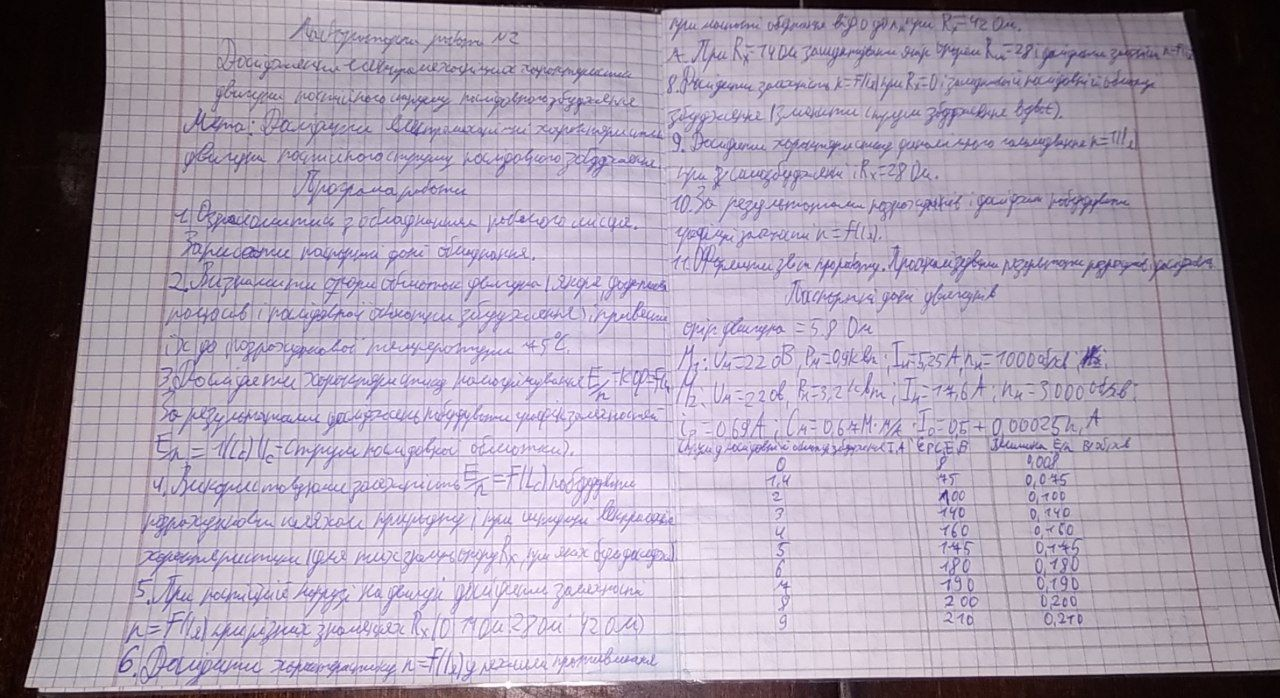 Лабораторна робота №2
Дослідження електромеханічних характеристик
двигуна постійного струму послідовного збудження
Мета: Дослідити електромеханічні характеристики
двигуна постійного струму послідовного збудження
Програма роботи
1. Ознайомитись з обладнанням робочого місця.
Записати паспортні дані обладнання.
2. Визначити опори обмоток двигуна (якоря, додаткових
полюсів і послідовної обмотки збудження), привести
їх до розрахункової температури 75°C.
3. Дослідити характеристику намагнічування E/n=kφ=F(Ic)
За результатами досліджень побудувати графік залежностей
E/n = f(Ic) (Ic=струм послідовної обмотки).
4. Використовуючи залежність E/n=F(Ic) побудувати
розрахунковим шляхом природну і при штучних
характеристики (для тих значень опору Rx при яких
5. При постійній напрузі на двигуні дослідити залежності
n=F(Iя) при різних значеннях Rx (0, 14 Ом 28 Ом 42 Ом)
6. Дослідити характеристику n=F(Iя) у режимі противмикання
при Rx=42 Ом.
7. При Rx=14 Ом зашунтувати якір опором Rш=28 і дослідити залежність n=F(Iя)
8. Дослідити залежність n=F(Iя) при Rx=0 і послідовній обмотці
збудження (зменшити струм збудження вдвоє).
9. Дослідити характеристику динамічного гальмування n=f(Iя)
при самозбудженні і Rx=28 Ом.
10. За результатами розрахунків і досліджень побудувати
графіки залежності n=F(Iя).
11. Оформити звіт про роботу. Проаналізувати результати розрахунків і досліджень
Паспортні дані двигунів
опір двигуна = 5.8 Ом
М1: Uн=220В, Pн=0,9кВт; Iн=5,25А, nн=1000об/хв;
М2: Uн=220В, Pн=3,2кВт; Iн=17,6А; nн=3000об/хв;
iв=0,69А; Cм=0,67 I0=0.5+0,00025n, А
Струм послідовної обмотки збудження I, А ЕРС, Е, В Величина E/n В/об/хв
0 8 0,008
1,4 75 0,075
2 100 0,100
3 140 0,140
4 160 0,160
5 175 0,175
6 180 0,180
7 190 0,190
8 200 0,200
9 210 0,210